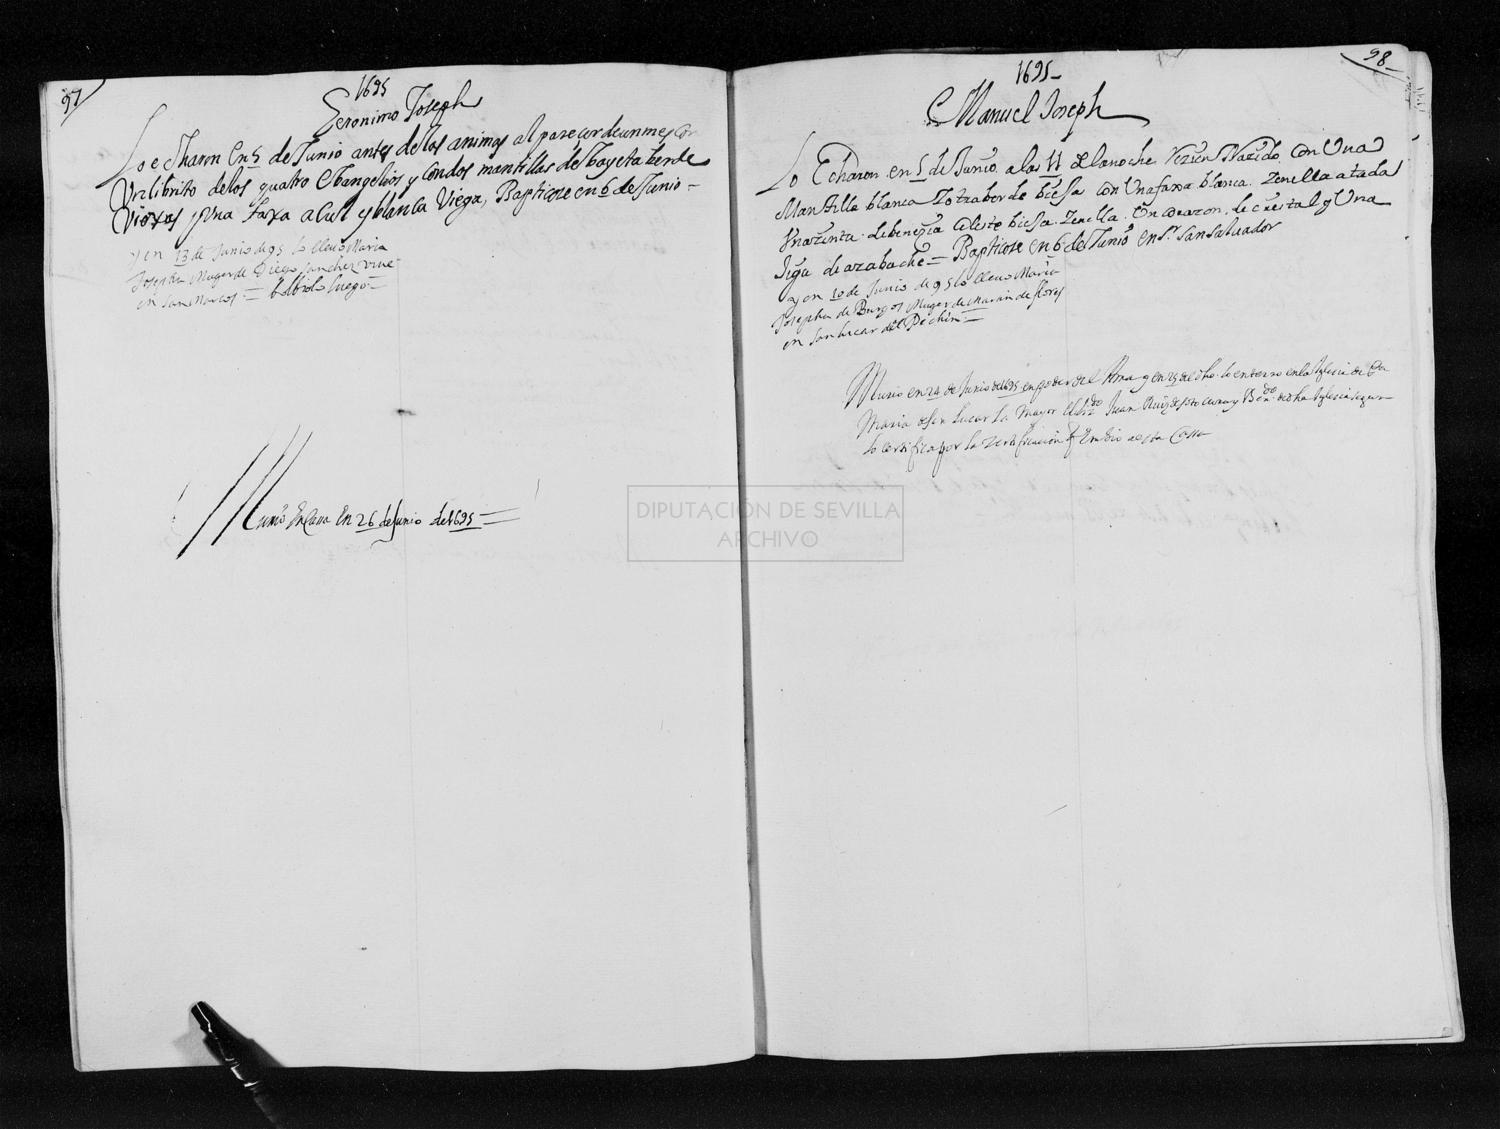 97
1695
Geronimo Joseph
Lo echaron en 5 de Junio antes de las animas al parecer de un mes con
Un librito de los quatro Ebangelios y con dos mantillas de bayeta berde
Viexas y Una faxa açul y blanca Viega, Baptiçose en 6 de Junio
y en 13 de Junio de 95 lo lleuo Maria
Josepha Muger de Diego Sanchez viue
en San Marcos = bolbiolo luego =
Murio En Casa En 26 de Junio de 1695
98
1695
Manuel Joseph
Lo Echaron en 5 de Junio a las 11 de la noche Rezien Nazido con Una
Mantilla blanca de biesa con Una faxa blanca atada
Una zinta de Un corazon de cristal y Una
figa de azabache = Baptiçose en 6 de Junio en Sn. San Saluador
y en 10 de Junio de 95 lo lleuo Maria
Josepha de Burgos Muger de de flores
en San lucar del Pechin =
Murio en 24 de Junio de 1695 en poder del Ama y en 25 de dho. lo enterro en la Iglesia de Sta
Maria de San Lucar La Mayor el Lizdo Juan Ruiz de Soto Cura y Benefdo de dha Iglesia segun
lo certifica por la zertificazion q Embio a esta Casa
DIPUTACIÓN DE SEVILLA
ARCHIVO